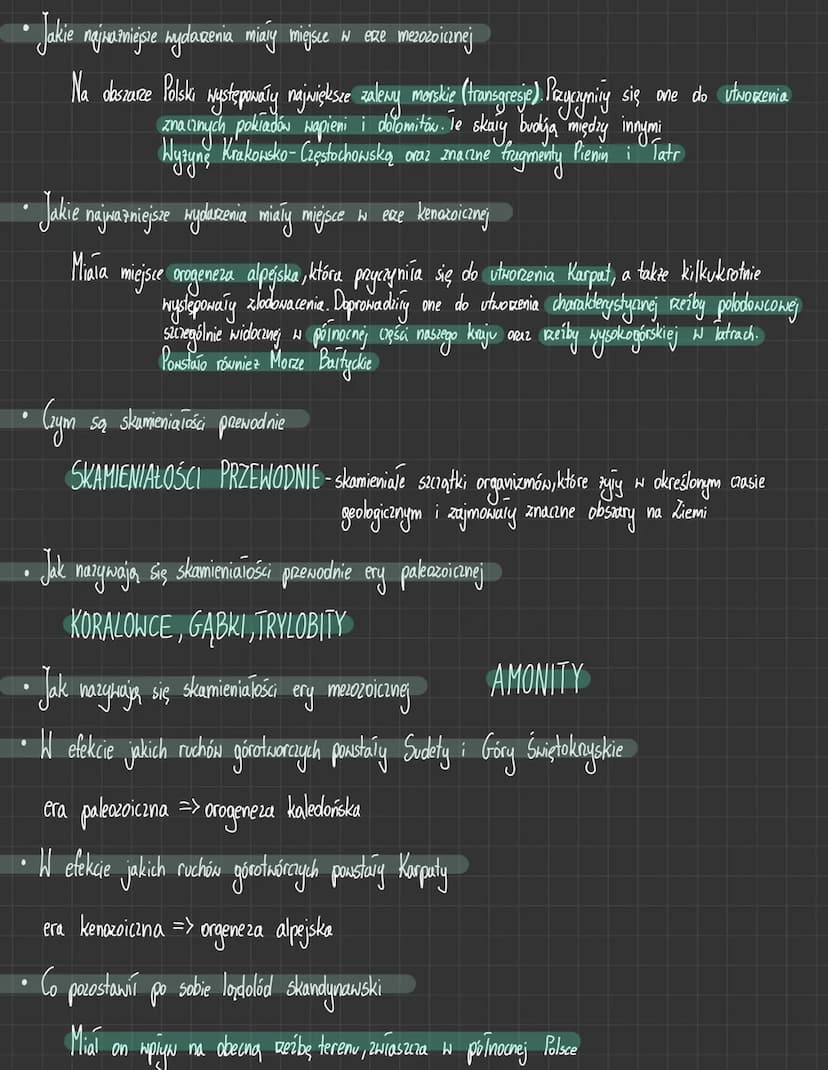 • Jakie najważniejsze wydarzenia miały miejsce w erze mezozoicznej
Na obszarze Polski występowały największe zalewy morskie (transgresje). Przyczyniły się one do utworzenia
znacznych pokładów wapieni i dolomitów. Te skały budują między innymi
Wyżynę Krakowsko-Częstochowską oraz znaczne fragmenty Pienin i Tatr
• Jakie najważniejsze wydarzenia miały miejsce w erze kenozoicznej
Miała miejsce orogeneza alpejska, która przyczyniła się do utworzenia Karpat, a także kilkukrotnie
występowały zlodowacenia. Doprowadziły one do utworzenia charakterystycznej rzeźby polodowcowej
szczególnie widocznej w północnej części naszego kraju oraz rzeźby wysokogórskiej w Tatrach.
Powstało również Morze Bałtyckie
• Czym są skamieniałości przewodnie
SKAMIENIAŁOŚCI PRZEWODNIE - skamieniałe szczątki organizmów, które żyły w określonym czasie
geologicznym i zajmowały znaczne obszary na Ziemi
• Jak nazywają się skamieniałości przewodnie ery paleozoicznej
KORALOWCE, GĄBKI, TRYLOBITY
• Jak nazywają się skamieniałości ery mezozoicznej AMONITY
• W efekcie jakich ruchów górotworczych powstały Sudety i Góry Świętokrzyskie
era paleozoiczna => orogeneza kaledońska
• W efekcie jakich ruchów górotwórczych powstały Karpaty
era kenozoiczna => orgeneza alpejska
• Co pozostawił po sobie lądolód skandynawski
Miał on wpływ na obecną rzeźbę terenu, zwłaszcza w północnej Polsce